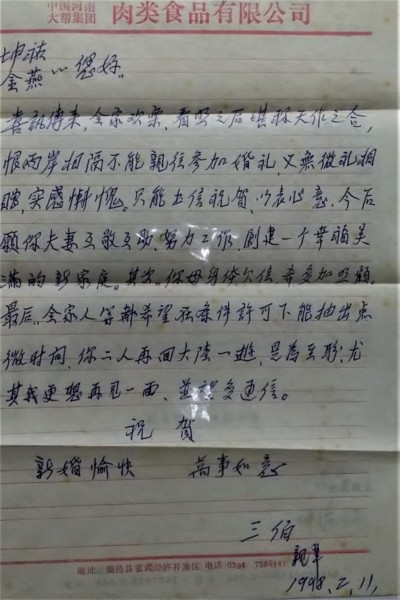 中国河南
大帮集团 肉类食品有限公司
坤法
金燕 您好
喜訊傳來,全家欢樂,看照之后堪称天作之合,
恨两岸相隔不能親往参加婚礼,又無微礼相
贈,实感慚愧。只能去信祝賀,以表心意,今后
願你夫妻互敬互助,努力工作,創建一个幸福美
满的新家庭。其次,你母身体欠佳,希多加照顧,
最后,全家人等都希望在条件許可下能抽出点
微时间,你二人再回大陸一趟,是為至盼,尤
其我更想再見一面,並祝多通信。
祝 賀
新婚愉快 萬事如意
三伯
親筆
1998.2.11,
地址: 经济开发区 电话 0394